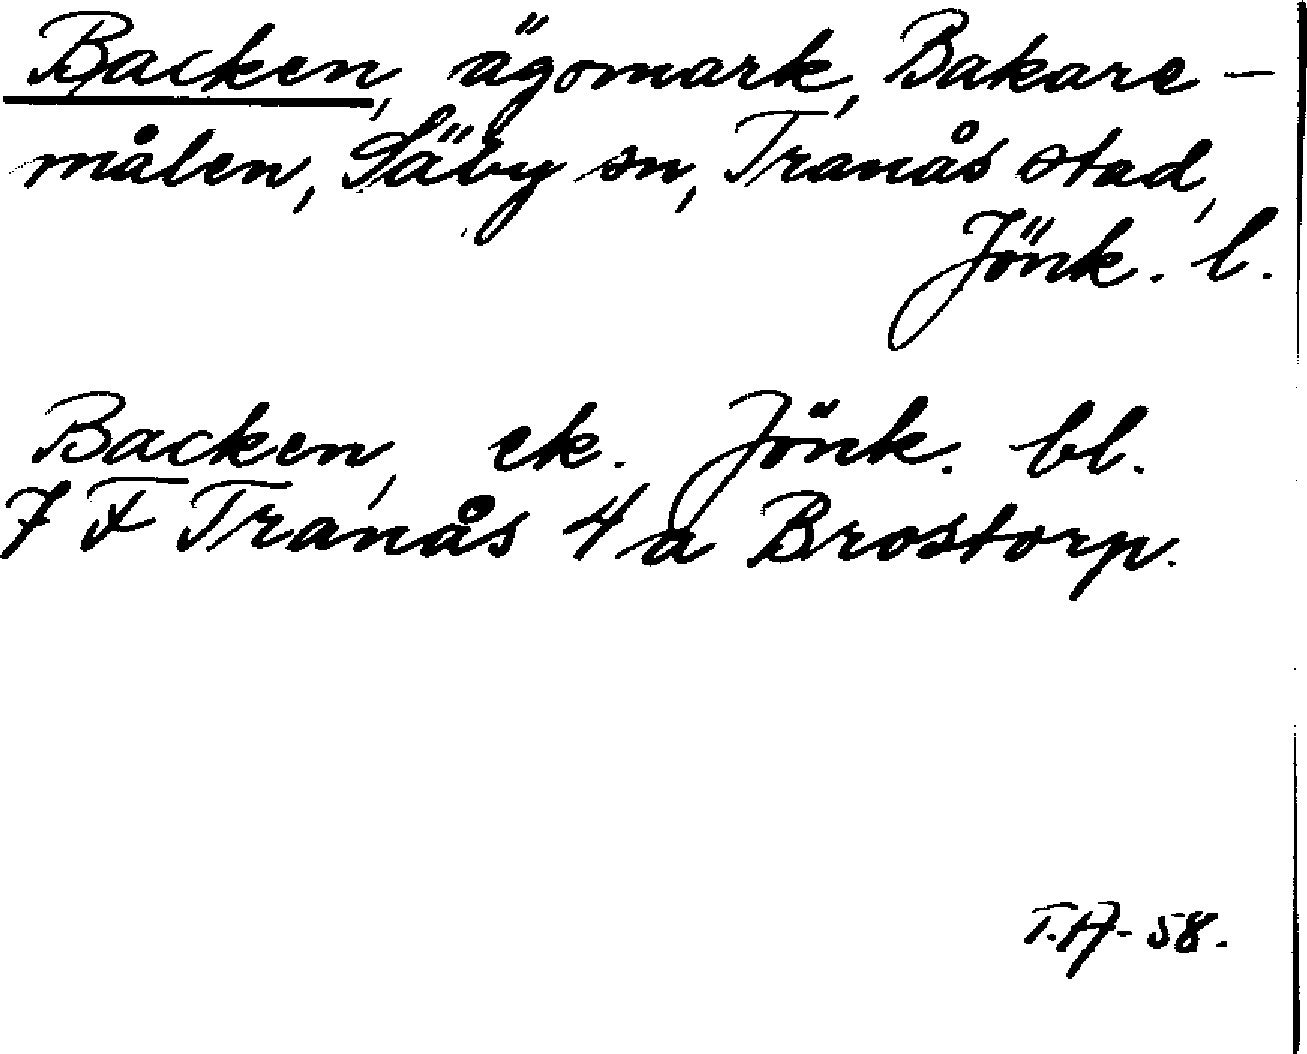 Backen, ägomark, Bakare-
målen, Säby sn, Tranås stad,
Jönk. l.
Backen, ek. Jönk. bl.
7 F Tranås 4 a Brostorp.
T.A- 58.